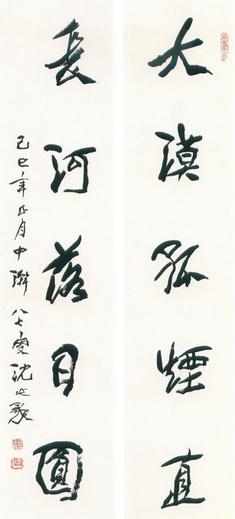 大漠孤煙直
長河落日圓
己巳年正月中澣八七叟沈延毅